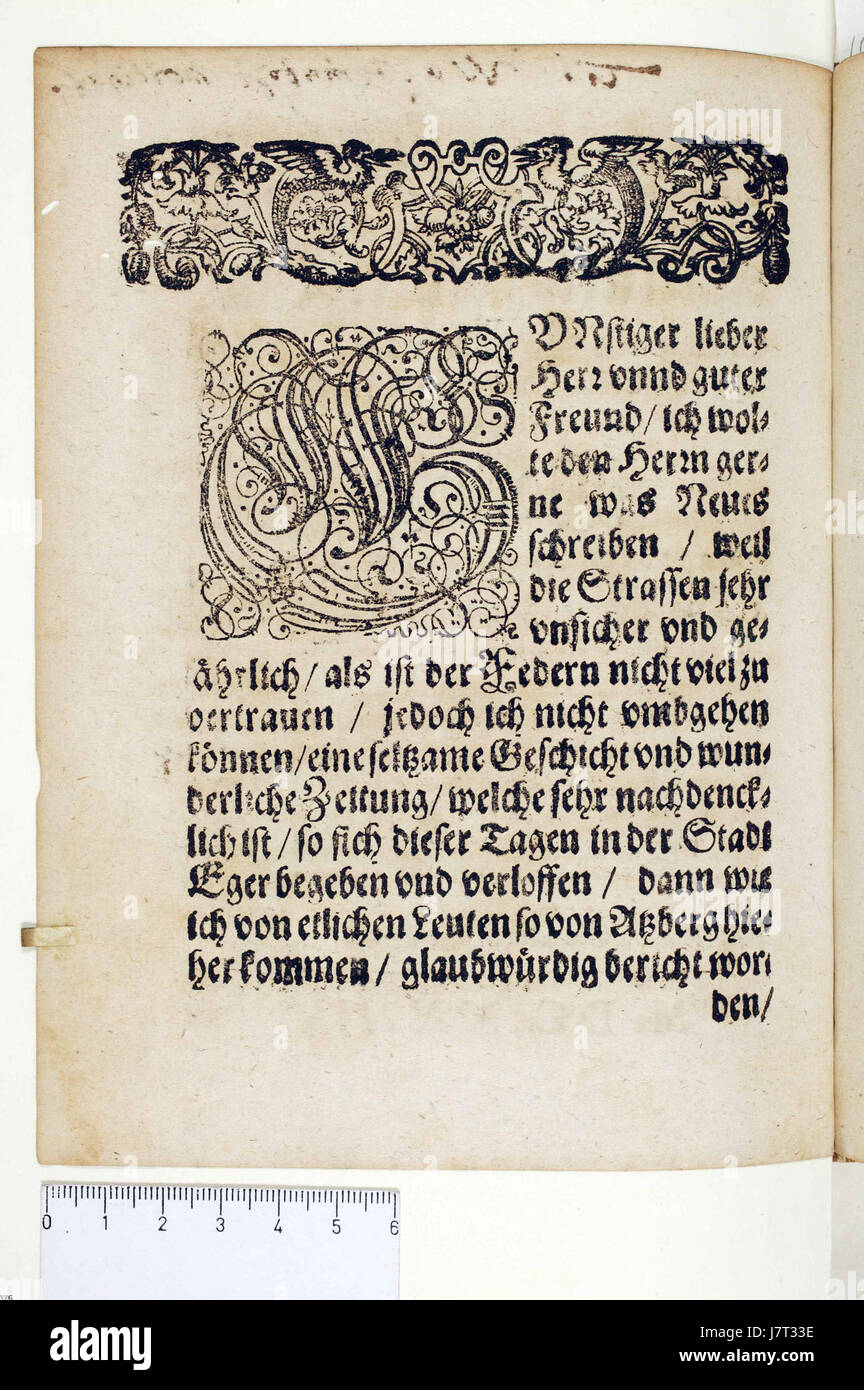 GUNstiger lieber
Herr vnnd guter
Freund/ ich wol-
te den Herrn ger-
ne was Neues
schreiben / weil
die Strassen sehr
vnsicher vnd ge-
ährlich/ als ist der Federn nicht viel zu
vertrauen / jedoch ich nicht vmbgehen
können/ eine seltzame Geschicht vnd wun-
derliche Zeitung/ welche sehr nachdenck-
lich ist/ so sich dieser Tagen in der Stadt
Eger begeben vnd verloffen / dann wie
ich von etlichen Leuten so von Atzberg hie-
her kommen/ glaubwürdig bericht wor-
den/
0 1 2 3 4 5 6
alamy
Image ID: J7T33E
www.alamy.com